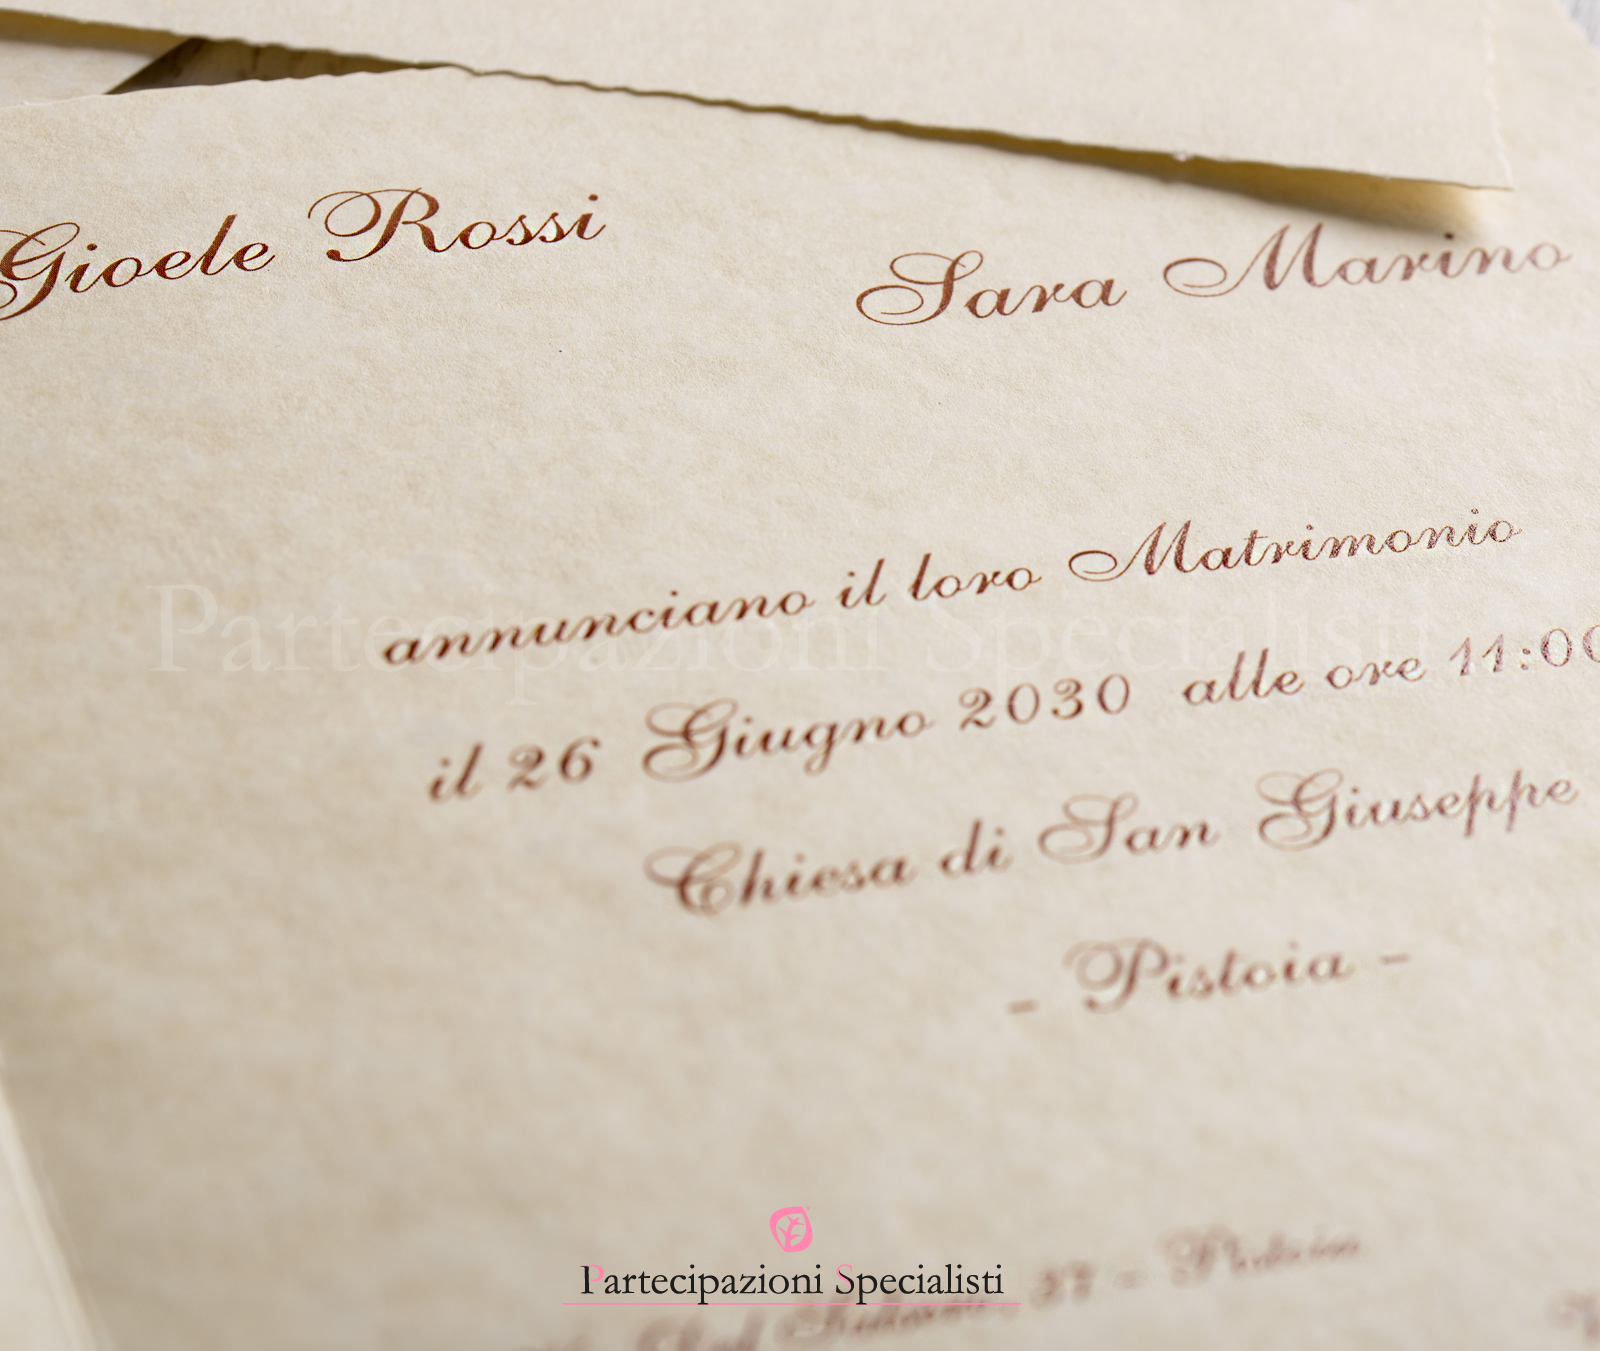 Gioele Rossi
Sara Marino
annunciano il loro Matrimonio
il 26 Giugno 2030 alle ore 11:00
Chiesa di San Giuseppe
- Pistoia -
Partecipazioni Specialisti
37 - Pistoia
Partecipazioni Specialisti